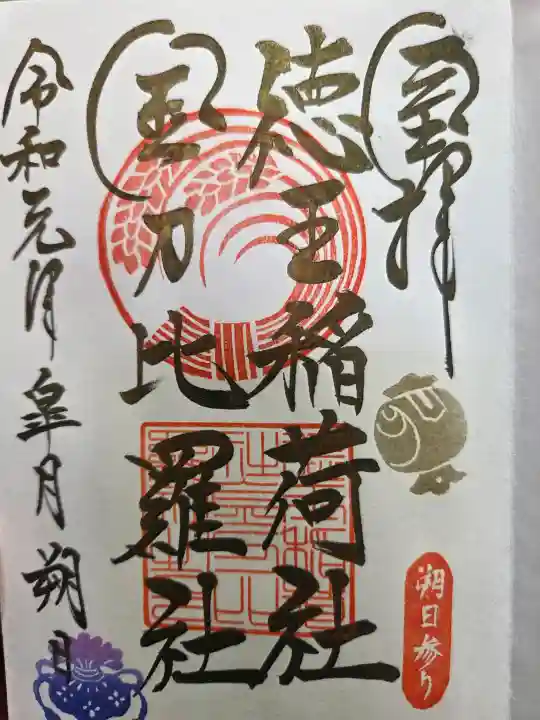 奉拝
朔日参り
徳王稲荷社
金刀比羅社
令和元年皐月朔日